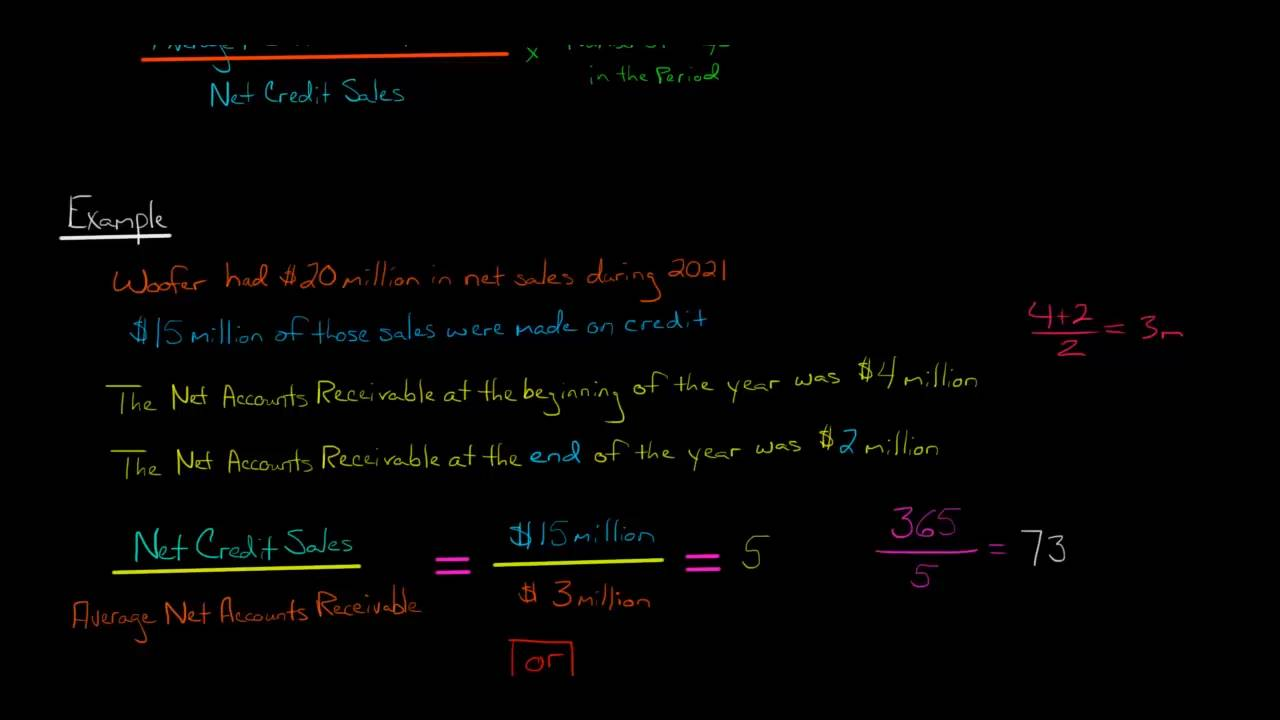 x
in the Period
Net Credit Sales
Example
Woofer had $20 million in net sales during 2021
$15 million of those sales were made on credit
4+2
2
= 3m
The Net Accounts Receivable at the beginning of the year was $4 million
The Net Accounts Receivable at the end of the year was $2 million
Net Credit Sales
Average Net Accounts Receivable
=
$15 million
$3 million
= 5
365
5
= 73
or